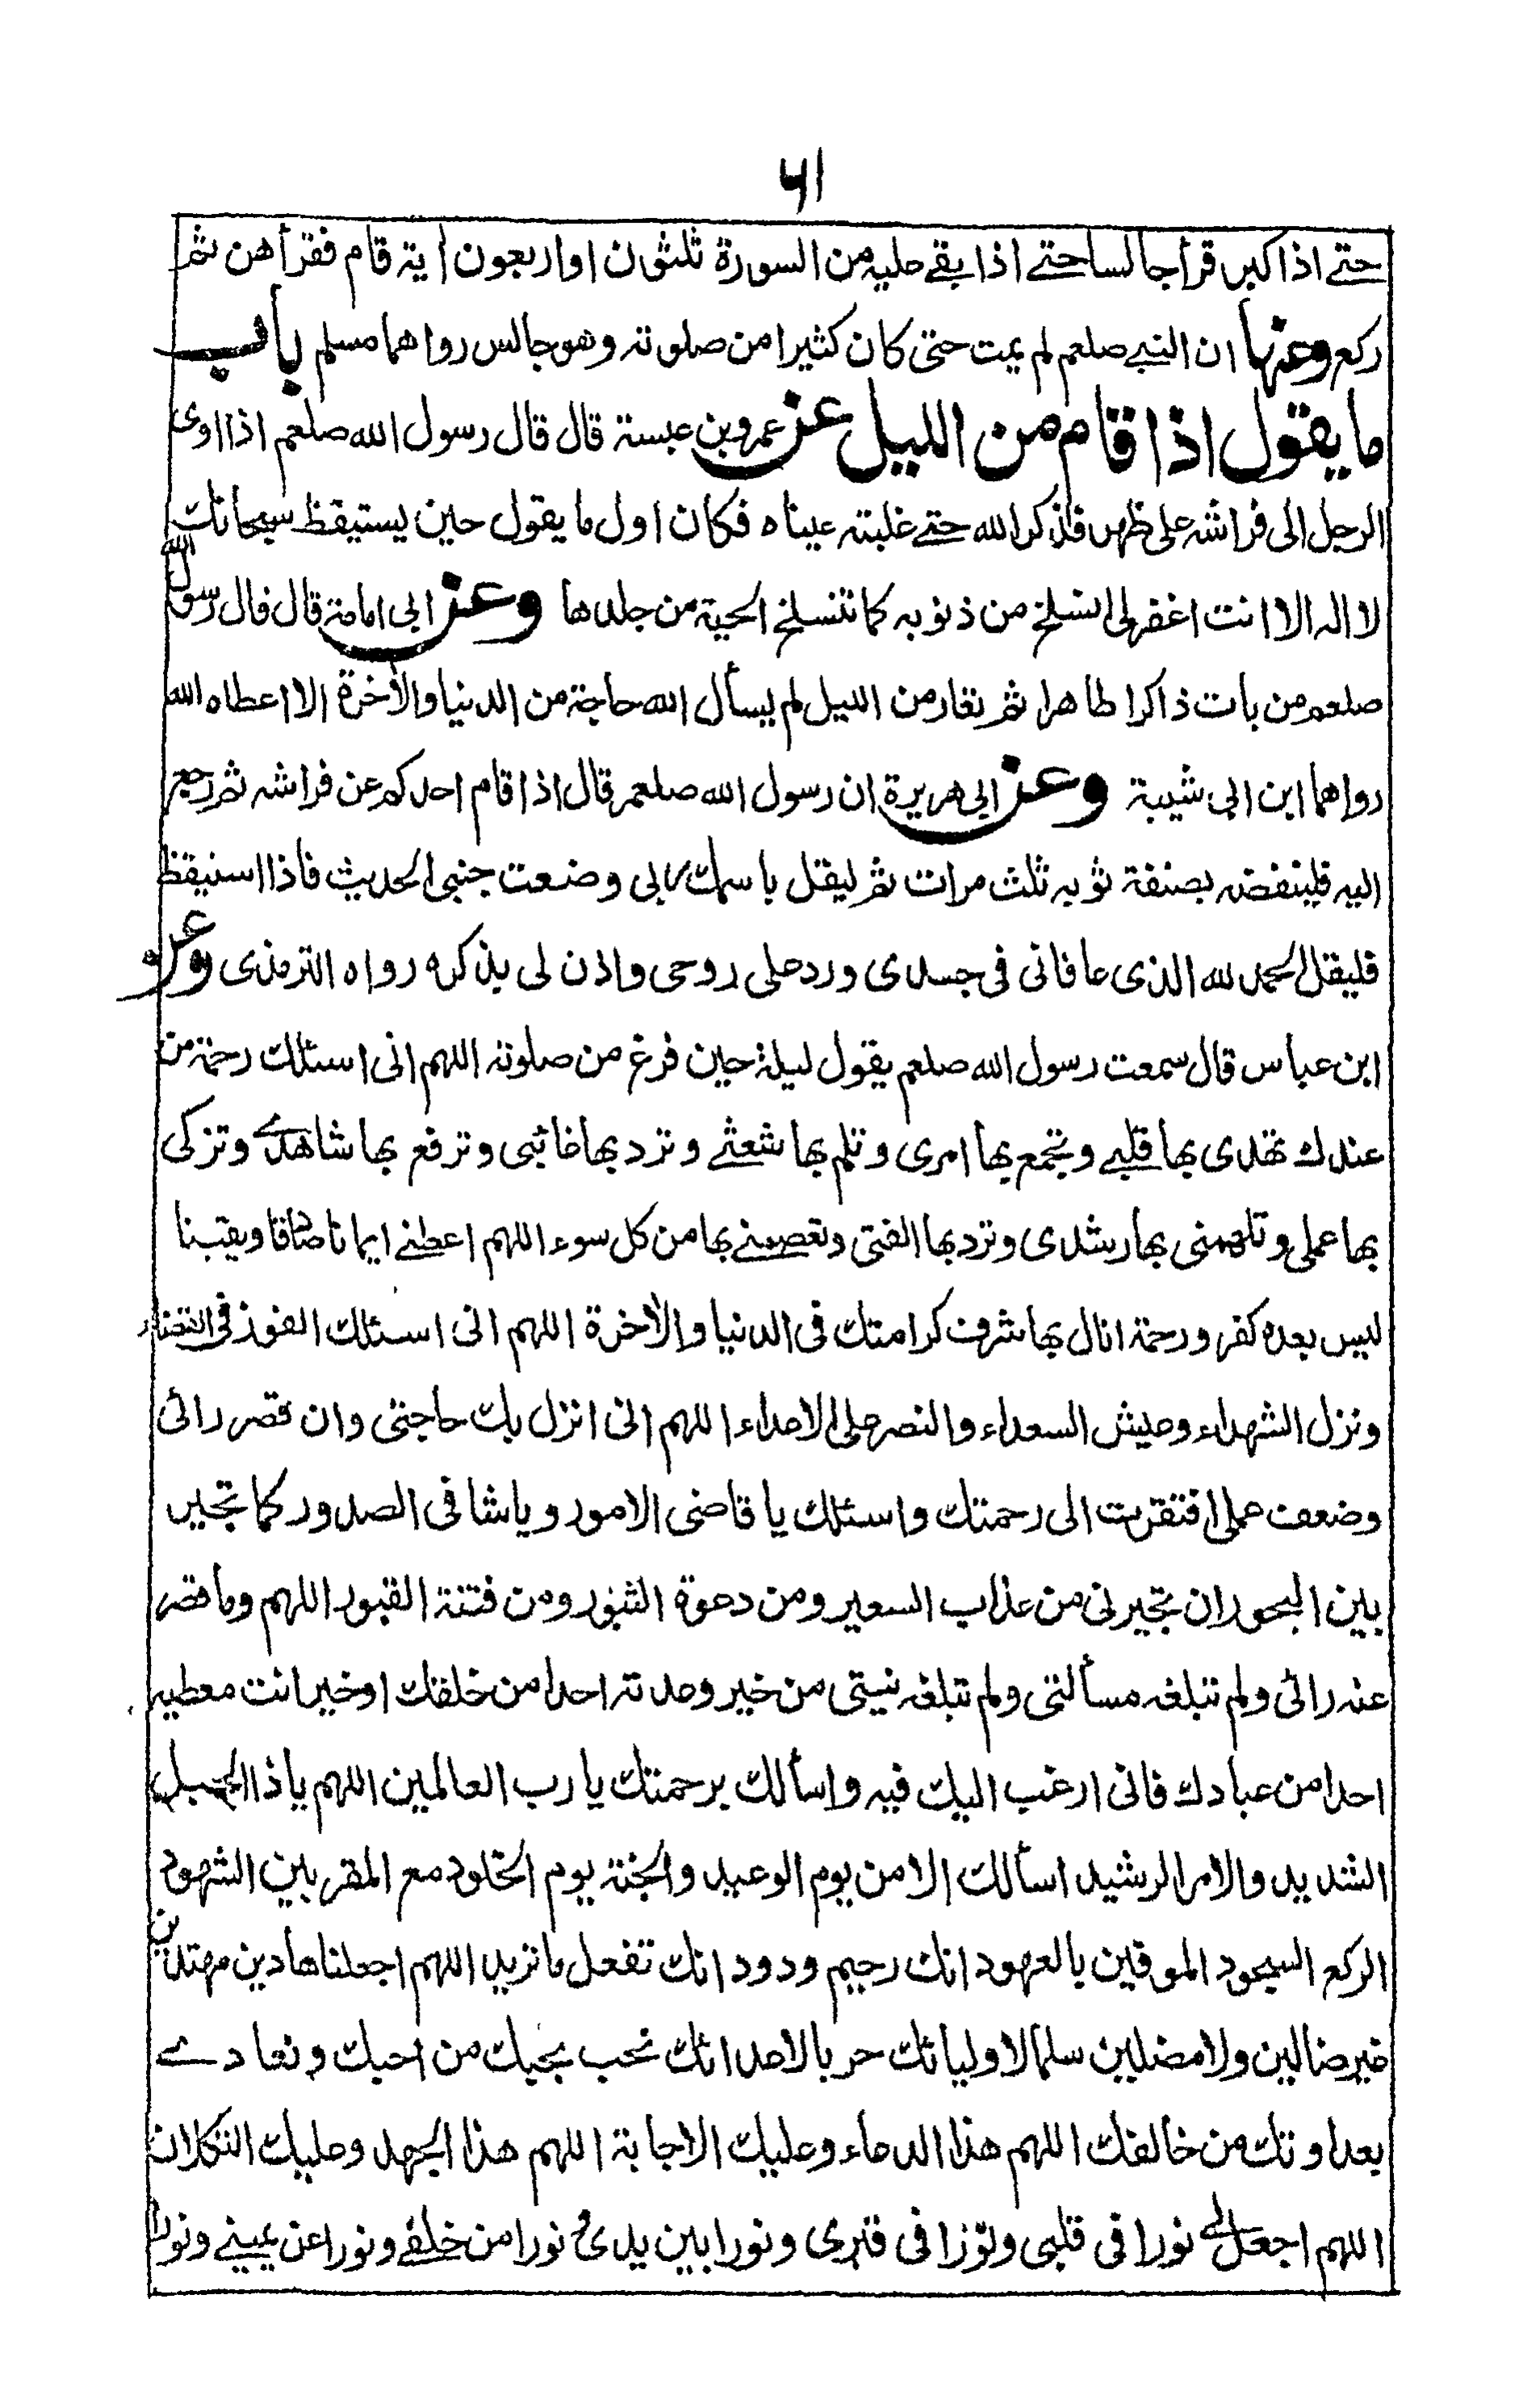 ٦١
حتے اذا كبر قرأ جالسا حتے اذا بقے عليه من السورة ثلثون او اربعون اية قام فقرأهن ثم
ركع وعنها ان النبے صلعم لم يمت حتى كان كثيرا من صلوته وهو جالس رواهما مسلم باب
ما يقول اذا قام من الليل عن عمرو بن عبسة قال قال رسول الله صلعم اذا اوى
الرجل الى فراشه على طهر فذكر الله حتے غلبته عيناه فكان اول ما يقول حين يستيقظ سبحانك
لا اله الا انت اغفر لى انسلخ من ذنوبه كما تنسلخ الحية من جلدها وعن ابى امامة قال قال رسول الله
صلعم من بات ذاكرا طاهرا ثم تعار من الليل لم يسأل الله حاجة من الدنيا والأخرة الا اعطاه الله
رواهما ابن ابى شيبة وعن ابى هريرة ان رسول الله صلعم قال اذا قام احدكم عن فراشه ثم رجع
اليه فلينفضه بصنفة ثوبه ثلث مرات ثم ليقل باسمك ربى وضعت جنبى الحديث فاذا استيقظ
فليقل الحمد لله الذى عافانى فى جسدى ورد على روحى واذن لى بذكره رواه الترمذى وعن
ابن عباس قال سمعت رسول الله صلعم يقول ليلة حين فرغ من صلوته اللهم انى اسئلك رحمة من
عندك تهدى بها قلبے وتجمع بها امرى وتلم بها شعثے وترد بها غائبى وترفع بها شاهدے وتزكى
بها عملى وتلهمنى بها رشدى وترد بها الفتى وتعصمنے بها من كل سوء اللهم اعطنے ايمانا صادقا ويقينا
ليس بعده كفر ورحمة انال بها شرف كرامتك فى الدنيا والأخرة اللهم انى اسئلك الفوز فى القضاء
ونزل الشهداء وعيش السعداء والنصر على الاعداء اللهم انى انزل بك حاجتى وان قصر رائى
وضعف عملى افتقرت الى رحمتك واسئلك يا قاضى الامور ويا شافى الصدور كما تجير
بين البحور ان تجيرنى من عذاب السعير ومن دعوة الثبور ومن فتنة القبور اللهم وما قصر
عنه رائى ولم تبلغه مسألتى ولم تبلغه نيتى من خير وعدته احدا من خلقك او خير انت معطيه
احدا من عبادك فانى ارغب اليك فيه واسألك برحمتك يا رب العالمين اللهم يا ذا الحبل
الشديد والامر الرشيد اسألك الامن يوم الوعيد والجنة يوم الخلود مع المقربين الشهود
الركع السجود الموفين بالعهود انك رحيم ودود انك تفعل ما تريد اللهم اجعلنا هادين مهتدين
غير ضالين ولا مضلين سلما لاوليائك حربا لاعدائك نحب بحبك من احبك ونعادے
بعداوتك من خالفك اللهم هذا الدعاء وعليك الاجابة اللهم هذا الجهد وعليك التكلان
اللهم اجعل لے نورا فى قلبى ونورا فى قبرى ونورا بين يدى ونورا من خلفے ونورا عن يمينے ونورا